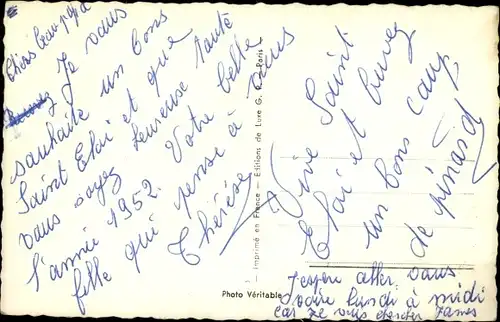 Chèrs beau-papa
Je vous
souhaite un bons
Saint Eloi et que
vous soyez heureuse santé
l'année 1952. Votre belle
fille qui pense à vous
Thérèse
Vive Saint
Eloi et buvez
un bons coup
de pinard
J'espère aller vous
voire lundi à midi
car je vais chercher James
Photo Véritable
Imprimé en France — Editions de Luxe G. Paris